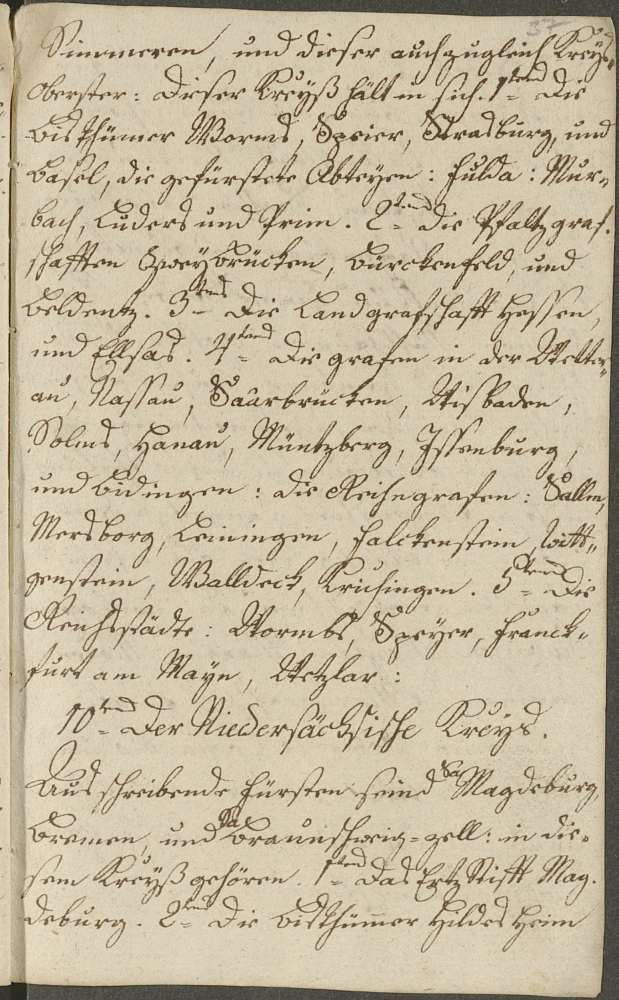 37
Simmeren, und dieser auch zugleich Kreys-
Oberster: dieser Kreyß hält in sich. 1tens die
Bisthümer Worms, Speier, Strasburg, und
Basel, die gefürstete Abteyen: Fulda: Mur-
bach, Luders und Prim. 2tens die Pfaltzgraf-
schafften Zweybrücken, Bürckenfeld, und
Veldentz. 3tens die Landgrafschafft Hessen,
und Ellsas. 4tens die grafen in der Wetter-
au, Nassau, Saarbrücken, Wisbaden,
Solms, Hanau, Müntzberg, Issenburg,
und Bidingen: die Reihngrafen: Sallm,
Mersborg, Leiningen, Falckenstein, Witt-
genstein, Walldeck, Krichingen. 5tens die
Reichsstädte: Wormbs, Speyer, Franck-
furt am Mayn, Wetzlar:
10tens Der Niedersächsische Kreys.
Ausschreibende Fürsten seind Magdeburg,
Bremen, und Braunschweig-Zell: in die-
sem Kreyß gehören. 1tens das Ertz Stifft Mag-
deburg. 2tens die Bisthümer Hildesheim